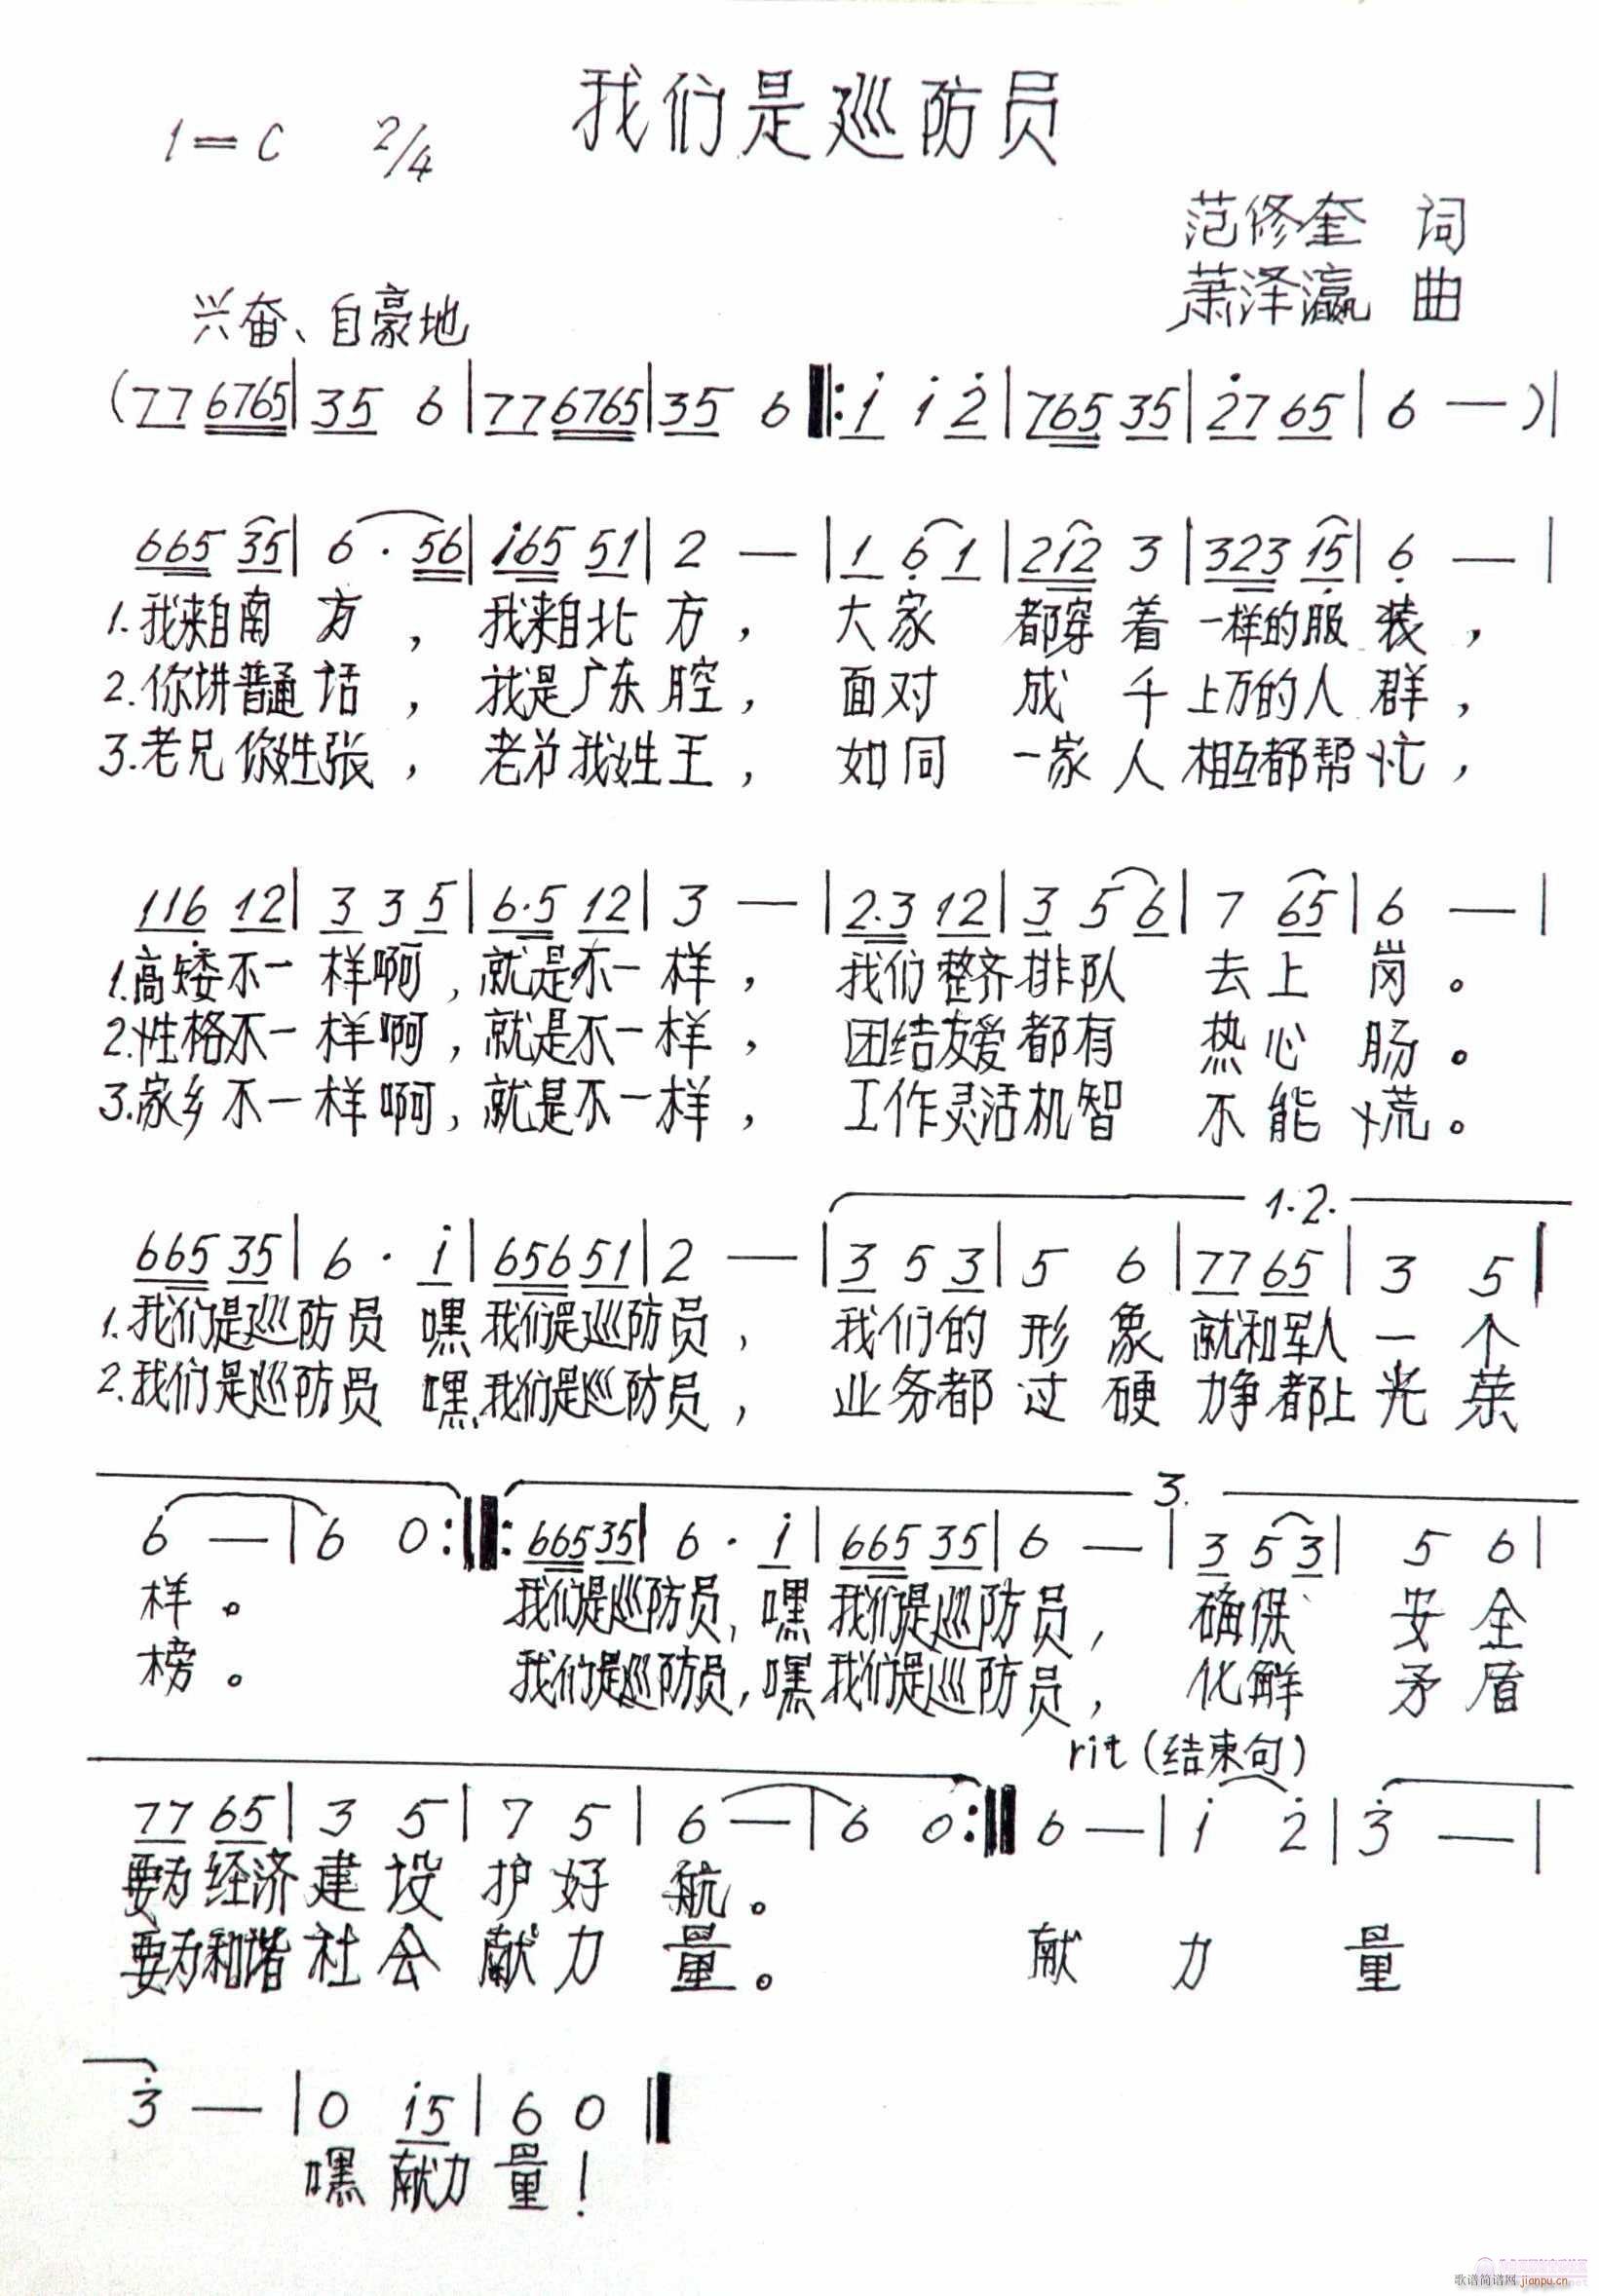 我们是巡防员
1=C 2/4
范修奎 词
萧泽瀛 曲
兴奋、自豪地
(77 6765|35 6|77 6765|35 6‖:i i 2̇|765 35|2̇7 65|6 —)|
665 35|6·56|i65 51|2 —|1 6̣ 1|212 3|323 15̣|6̣ —|
1.我来自南方，我来自北方，大家都穿着一样的服装，
2.你讲普通话，我是广东腔，面对成千上万的人群，
3.老兄你姓张，老弟我姓王，如同一家人相互都帮忙，
116̣ 12|3 3 5|6·5 12|3 —|2·3 12|3 5 6|7 65|6 —|
1.高矮不一样啊，就是不一样，我们整齐排队去上岗。
2.性格不一样啊，就是不一样，团结友爱都有热心肠。
3.家乡不一样啊，就是不一样，工作灵活机智不能慌。
1.2.
665 35|6·i|656 51|2 —|3 5 3|5 6|77 65|3 5|
1.我们是巡防员嘿我们是巡防员，我们的形象就和军人一个
2.我们是巡防员嘿我们是巡防员，业务都过硬力争都上光荣
3.
6 —|6 0:‖:665 35|6·i|665 35|6 —|3 5 3|5 6|
样。我们是巡防员，嘿我们是巡防员，确保安全
榜。我们是巡防员，嘿我们是巡防员，化解矛盾
rit(结束句)
77 65|3 5|7 5|6 —|6 0:‖6 —|i 2̇|3̇ —|
要为经济建设护好航。
要为和谐社会献力量。献力量
3̇ —|0 i5|6 0‖
嘿献力量！
歌谱简谱网 jianpu.cn